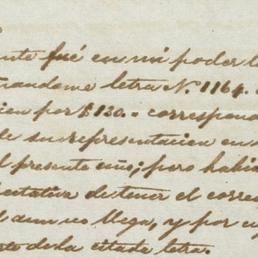 ente fué en mi poder l
mandome letra N. 1164.
cien por $130.- correspon
de su representacion en
l presente año; pero habi
tativa de tener el corre
l aun no llega, y por
to de la citada letra.